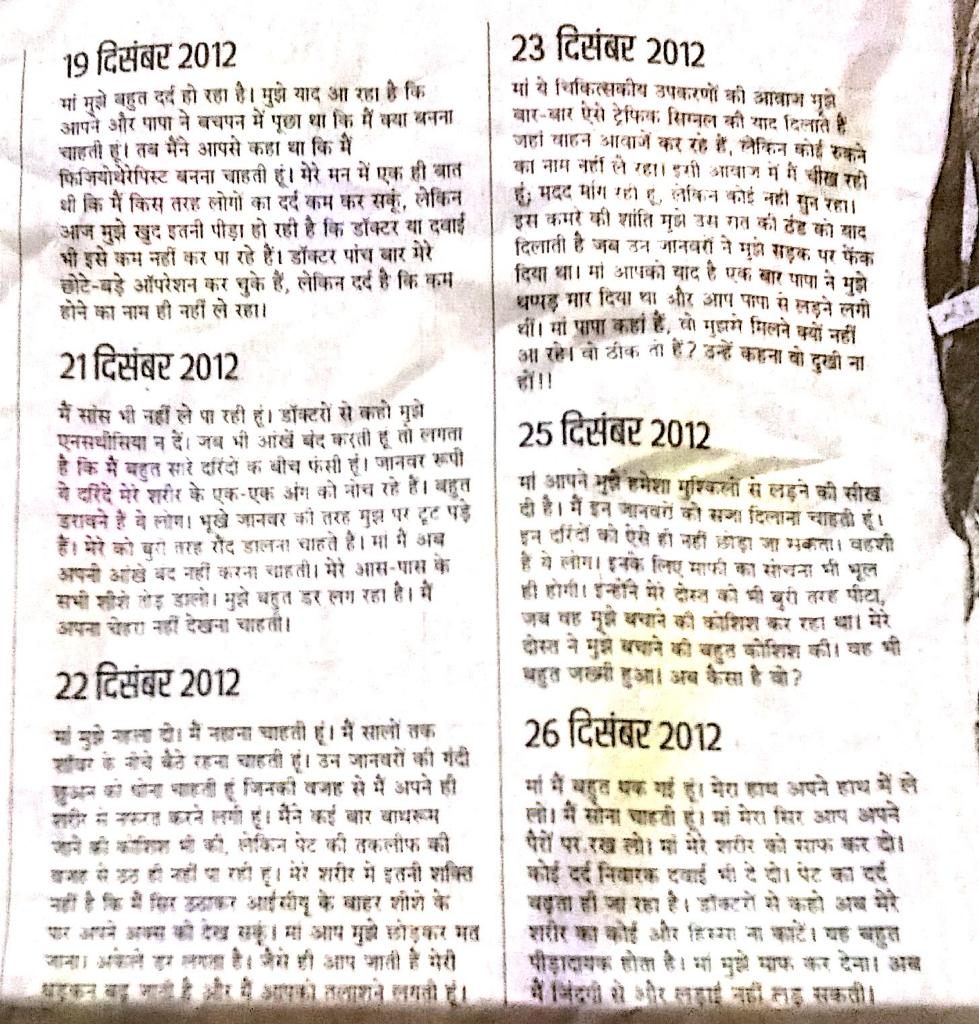 19 दिसंबर 2012
मां मुझे बहुत दर्द हो रहा है। मुझे याद आ रहा है कि
आपने और पापा ने बचपन में पूछा था कि मैं क्या बनना
चाहती हूं। तब मैंने आपसे कहा था कि मैं
फिजियोथेरेपिस्ट बनना चाहती हूं। मेरे मन में एक ही बात
थी कि मैं किस तरह लोगों का दर्द कम कर सकूं, लेकिन
आज मुझे खुद इतनी पीड़ा हो रही है कि डॉक्टर या दवाई
भी इसे कम नहीं कर पा रहे हैं। डॉक्टर पांच बार मेरे
छोटे-बड़े ऑपरेशन कर चुके हैं, लेकिन दर्द है कि कम
होने का नाम ही नहीं ले रहा।
21 दिसंबर 2012
मैं सांस भी नहीं ले पा रही हूं। डॉक्टरों से कहो मुझे
एनसथीसिया न दें। जब भी आंखें बंद करती हूं तो लगता
है कि मैं बहुत सारे दरिंदों के बीच फंसी हूं। जानवर रूपी
ये दरिंदे मेरे शरीर के एक-एक अंग को नोच रहे हैं। बहुत
डरावने हैं ये लोग। भूखे जानवर की तरह मुझ पर टूट पड़े
हैं। मेरे को बुरी तरह रौंद डालना चाहते है। मां मैं अब
अपनी आंखें बंद नहीं करना चाहती। मेरे आस-पास के
सभी शीशे तोड़ डालो। मुझे बहुत डर लग रहा है। मैं
अपना चेहरा नहीं देखना चाहती।
22 दिसंबर 2012
मां मुझे नहला दो। मैं नहाना चाहती हूं। मैं सालों तक
शॉवर के नीचे बैठे रहना चाहती हूं। उन जानवरों की गंदी
छुअन को धोना चाहती हूं जिनकी वजह से मैं अपने ही
शरीर से नफरत करने लगी हूं। मैंने कई बार बाथरूम
जाने की कोशिश भी की, लेकिन पेट की तकलीफ की
वजह से उठ ही नहीं पा रही हूं। मेरे शरीर में इतनी शक्ति
नहीं है कि मैं सिर उठाकर आईसीयू के बाहर शीशे के
पार अपने अक्स को देख सकूं। मां आप मुझे छोड़कर मत
जाना। अकेले डर लगता है। जैसे ही आप जाती है मेरी
धड़कन बढ़ जाती है और मैं आपको तलाशने लगती हूं।
23 दिसंबर 2012
मां ये चिकित्सकीय उपकरणों की आवाज मुझे
बार-बार ऐसे ट्रेफिक सिग्नल की याद दिलाते है
जहां वाहन आवाजें कर रहे हैं, लेकिन कोई रुकने
का नाम नहीं ले रहा। इसी आवाज में मैं चीख रही
हूं, मदद मांग रही हूं, लेकिन कोई नहीं सुन रहा।
इस कमरे की शांति मुझे उस रात की ठंड की याद
दिलाती है जब उन जानवरों ने मुझे सड़क पर फेंक
दिया था। मां आपको याद है एक बार पापा ने मुझे
थप्पड़ मार दिया था और आप पापा से लड़ने लगी
थीं। मां पापा कहां हैं, वो मुझसे मिलने क्यों नहीं
आ रहे। वो ठीक तो हैं? उन्हें कहना वो दुखी ना
हों!!
25 दिसंबर 2012
मां आपने मुझे हमेशा मुश्किलों से लड़ने की सीख
दी है। मैं इन जानवरों को सजा दिलाना चाहती हूं।
इन दरिंदों को ऐसे ही नहीं छोड़ा जा सकता। वहशी
है ये लोग। इनके लिए माफी का सोचना भी भूल
ही होगी। इन्होंने मेरे दोस्त को भी बुरी तरह पीटा,
जब वह मुझे बचाने की कोशिश कर रहा था। मेरे
दोस्त ने मुझे बचाने की बहुत कोशिश की। वह भी
बहुत जख्मी हुआ। अब कैसा है वो?
26 दिसंबर 2012
मां मैं बहुत थक गई हूं। मेरा हाथ अपने हाथ में ले
लो। मैं सोना चाहती हूं। मां मेरा सिर आप अपने
पैरों पर रख लो। मां मेरे शरीर को साफ कर दो।
कोई दर्द निवारक दवाई भी दे दो। पेट का दर्द
बढ़ता ही जा रहा है। डॉक्टरों से कहो अब मेरे
शरीर का कोई और हिस्सा ना काटें। यह बहुत
पीड़ादायक होता है। मां मुझे माफ कर देना। अब
मैं जिंदगी से और लड़ाई नहीं लड़ सकती।